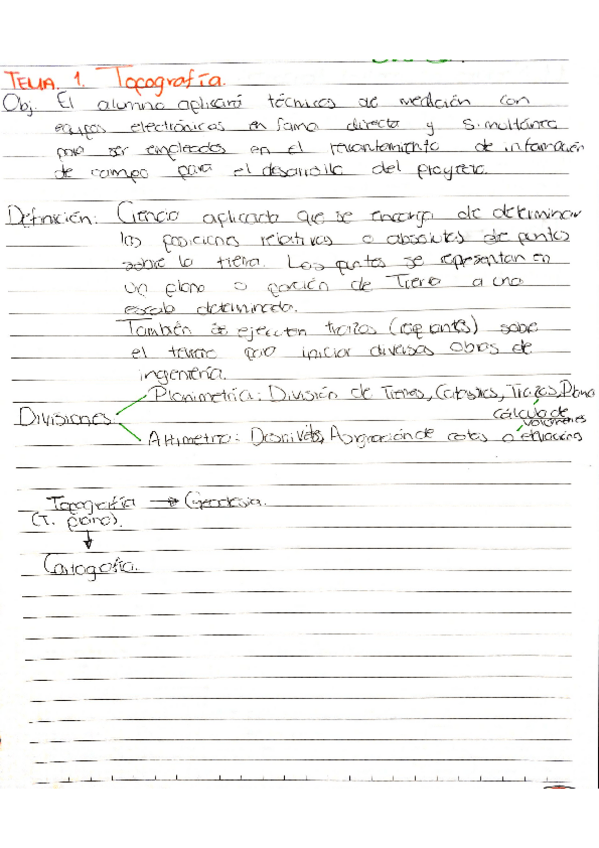 TEMA. 1. Topografía.
Obj. El alumno aplicará técnicas de medición con
equipos electrónicos en forma directa y simultánea
para ser empleados en el levantamiento de información
de campo para el desarrollo del proyecto.
Definición: Ciencia aplicada que se encarga de determinar
las posiciones relativas o absolutas de puntos
sobre la tierra. Los puntos se representan en
un plano o porción de Tierra a una
escala determinada.
También se ejecutan trazos (replanteos) sobre
el terreno para iniciar diversas obras de
ingeniería.
Planimetría: División de Tierras, Catastros, Trazos,
Divisiones
cálculo de
volúmenes
Altimetría: Desniveles, Asignación de cotas o elevaciones
Topografía → Geodesia.
(T. plana).
↓
Cartografía.